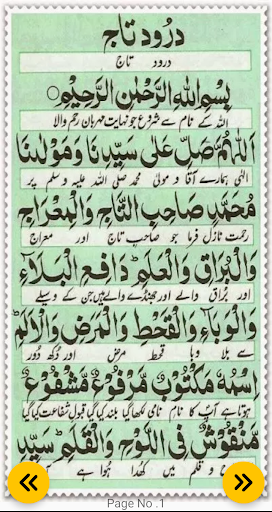 درود تاج
درود تاج
بِسْمِ اللهِ الرَّحْمٰنِ الرَّحِيْمِ
اللہ کے نام سے شروع جو نہایت مہربان رحم والا
اَللّٰهُمَّ صَلِّ عَلٰى سَيِّدِنَا وَمَوْلٰينَا
الٰہی ہمارے آقا و مولیٰ محمد صلی اللہ علیہ وسلم پر
مُحَمَّدٍ صَاحِبِ التَّاجِ وَالْمِعْرَاجِ
رحمت نازل فرما جو صاحب تاج اور معراج
وَالْبُرَاقِ وَالْعَلَمِ دَافِعِ الْبَلَآءِ
اور براق والے اور جھنڈے والے ہیں جن کے وسیلے
وَالْوَبَآءِ وَالْقَحْطِ وَالْمَرَضِ وَالْاَلَمِ
سے بلا وبا قحط مرض اور دکھ دور
اِسْمُهٗ مَكْتُوْبٌ مَّرْفُوْعٌ مَّشْفُوْعٌ
ہوتا ہے آپ کا نام نامی لکھا گیا بلند کیا گیا قبول شفاعت کیا گیا
مَّنْقُوْشٌ فِى اللَّوْحِ وَالْقَلَمِ سَيِّدِ
و قلم میں کھدا ہوا ہے
Page No .1